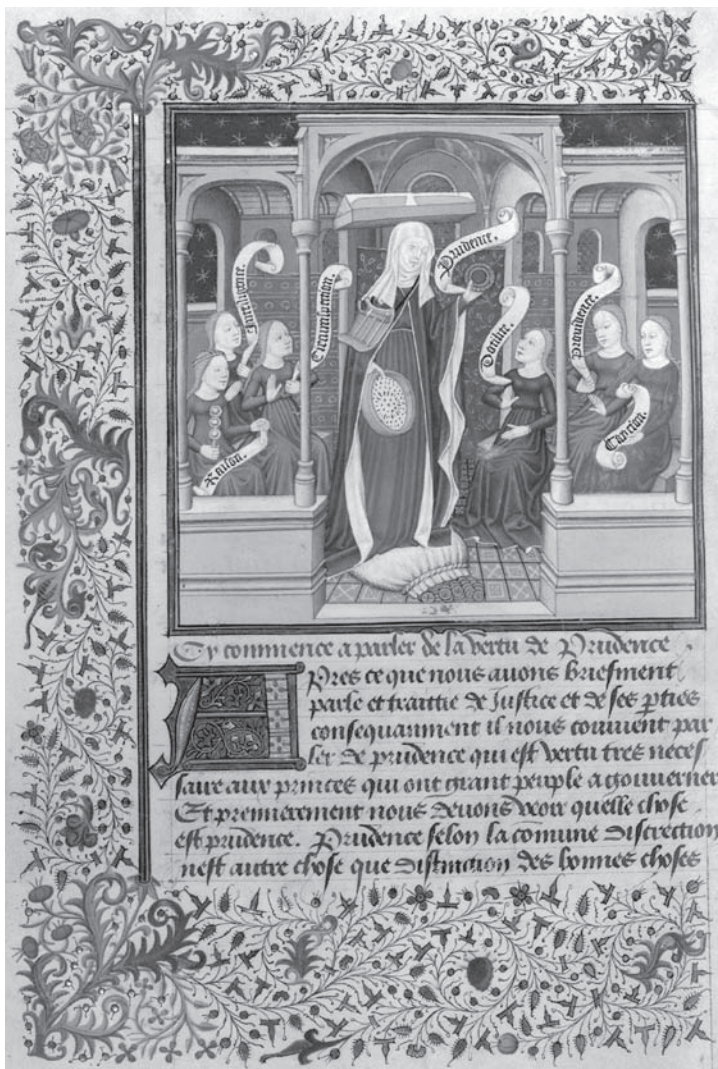 Intelligence.
Circumspection.
Prudence.
Docilite.
Prouidence.
Raison.
Caucion.
Cy commence a parler de la vertu de Prudence
Apres ce que nous auons briefment
parle et traittie de Justice et de ses pties
consequanment il nous conuient par
ler de prudence qui est vertu tres neces
saire aux princes qui ont grant peuple a gouuerner
Et premierement nous deuons veoir quelle chose
est prudence. Prudence selon la comune discrection
nest autre chose que distinction des bonnes choses